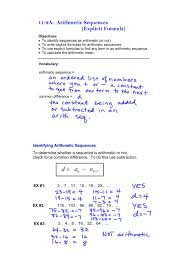 11-4A: Arithmetic Sequences
(Explicit Formula)
Objectives:
• To identify sequences as arithmetic (or not).
• To write explicit formulas for arithmetic sequences.
• To use explicit formulas to find any term in an arithmetic sequence.
• To calculate the arithmetic mean.
Vocabulary:
arithmetic sequence = an ordered list of numbers
where you + or - a constant
to get from one term to the next
common difference = the constant being added
d or subtracted in an
arith. seq.
Identifying Arithmetic Sequences
To determine whether a sequence is arithmetic or not,
check for a common difference. To do this use subtraction.
EX #1: 3, 7, 11, 15, 19, 23, ... yes
7-3=4 15-11=4 d=4
11-7=4 19-15=4
EX #2: yes
d=-7
EX #3: not arithmetic
64-32=32
32-16=16
16-8=8